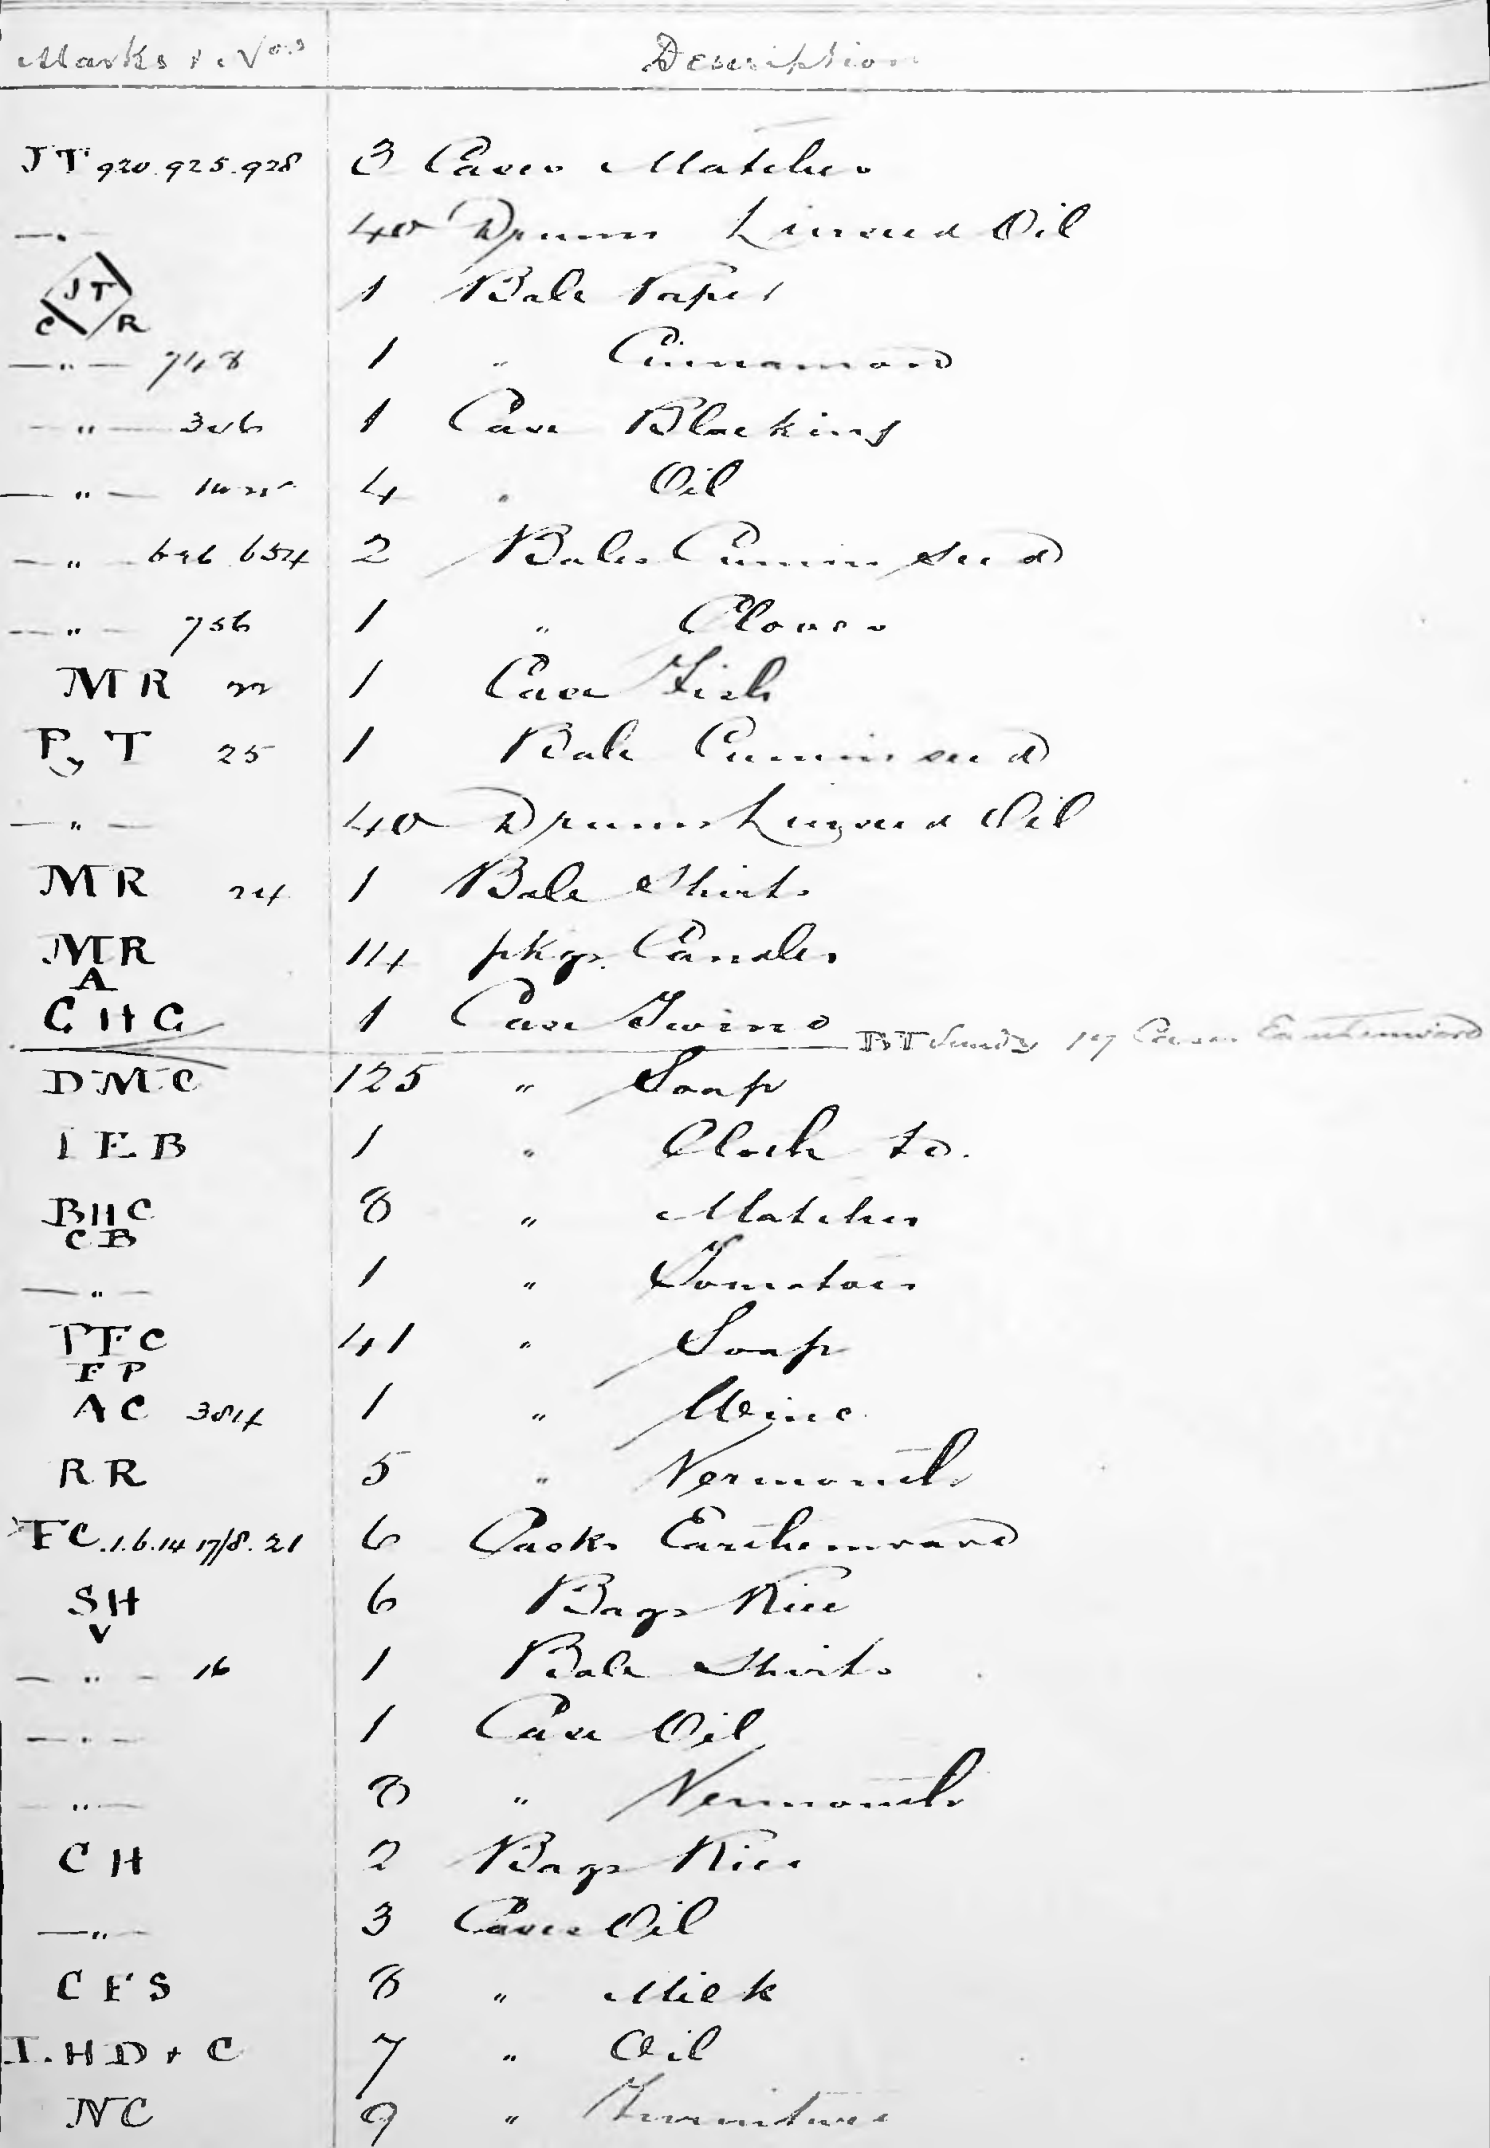 Marks & Nos Description
JT 920.925.928 3 Cases Matches
—"— 40 Drums Linseed Oil
JT C R 1 Bale Paper
—"— 748 1 " Cinnamon
—"— 306 1 Case Blacking
—"— 4 " Oil
—"— 646 654 2 Bales Cummin seed
—"— 756 1 " Cloves
MR 22 1 Case Fish
P y T 25 1 Bale Cummin seed
—"— 40 Drums Linseed Oil
MR 24 1 Bale Shirts
MR A 114 pkgs. Candles
CHG 1 Case Twine BT Sundry 17 Cases Earthenware
DMC 125 " Soap
IEB 1 " Clock to.
BHC CB 8 " Matches
—"— 1 " Tomatoes
PFC FP 41 " Soap
AC 384 1 " Wine
RR 5 " Vermouth
FC.1.6.14 17/8.21 6 Casks Earthenware
SH V 6 Bags Rice
—"— 16 1 Bale Shirts
—"— 1 Case Oil
—"— 8 " Vermouth
CH 2 Bags Rice
—"— 3 Cases Oil
CFS 8 " Milk
I.HD & C 7 " Oil
NC 9 " Furniture